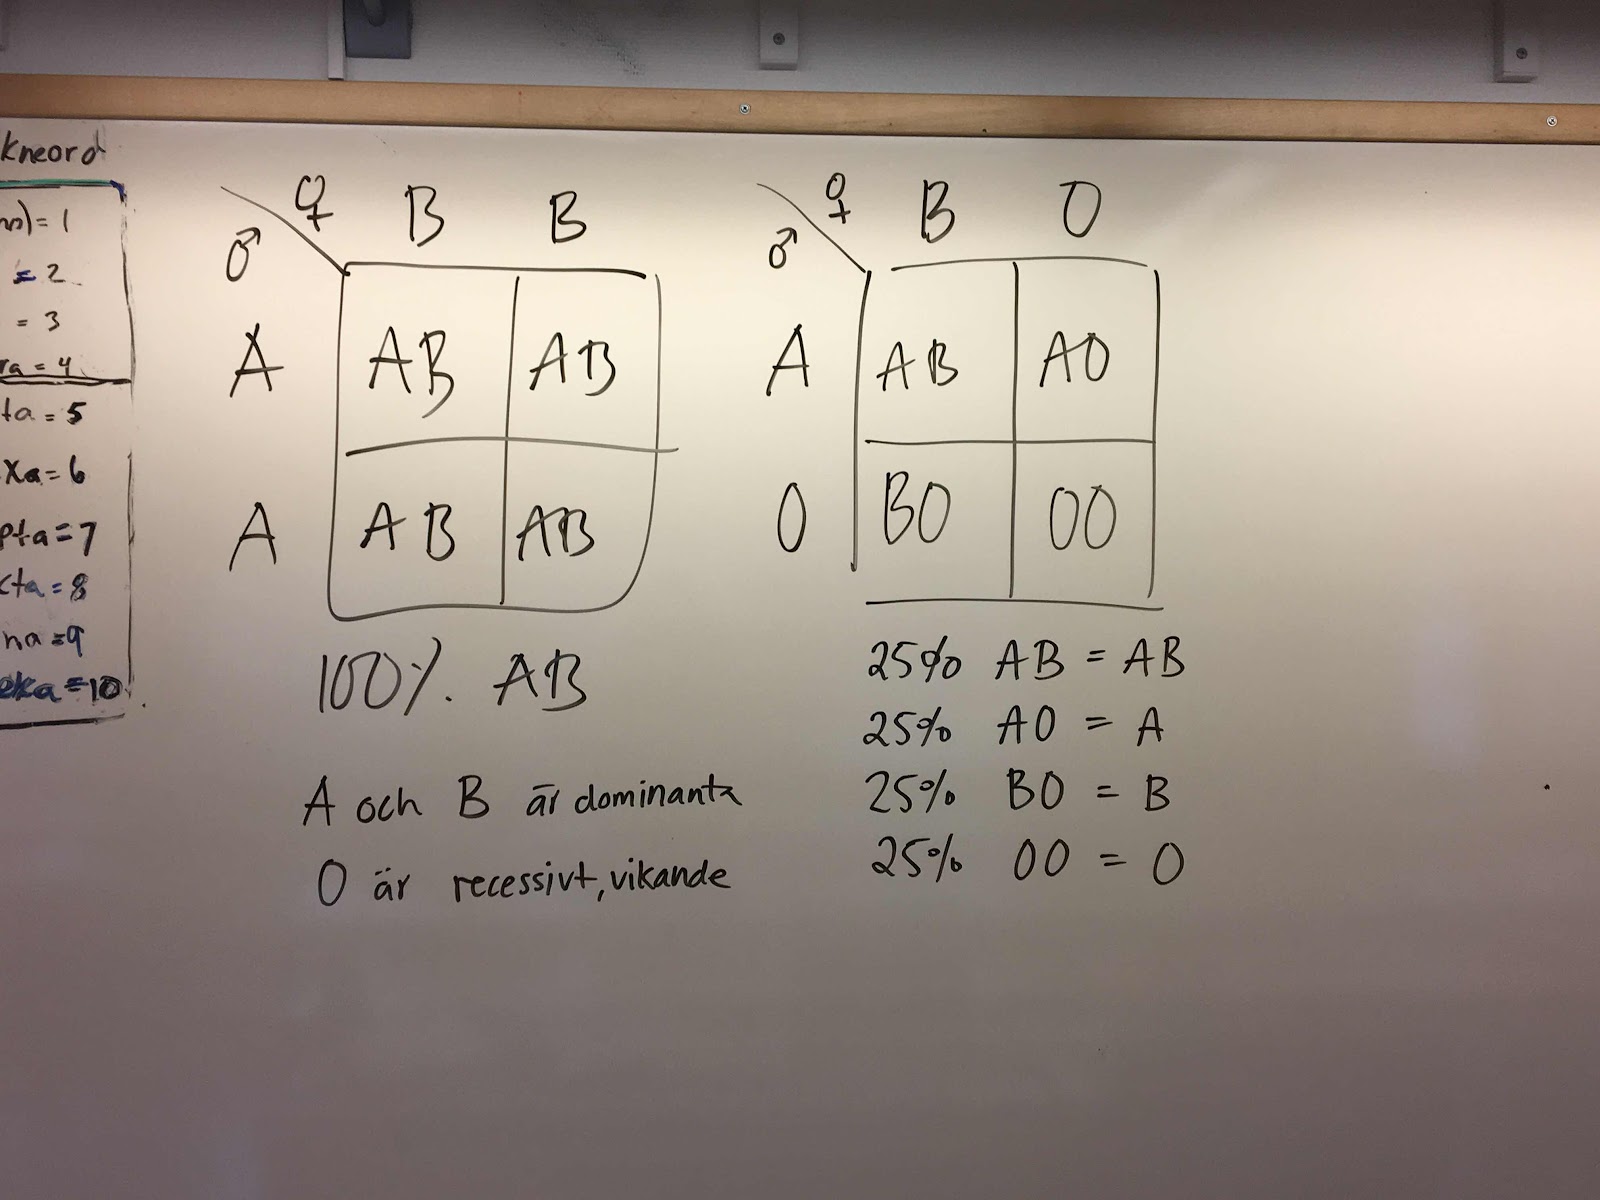 = 1
= 2
= 3
= 4
= 5
= 6
= 7
= 8
= 9
= 10
♀ B B
♂
A AB AB
A AB AB
100% AB
A och B är dominanta
O är recessivt, vikande
♀ B O
♂
A AB AO
O BO OO
25% AB = AB
25% AO = A
25% BO = B
25% OO = O